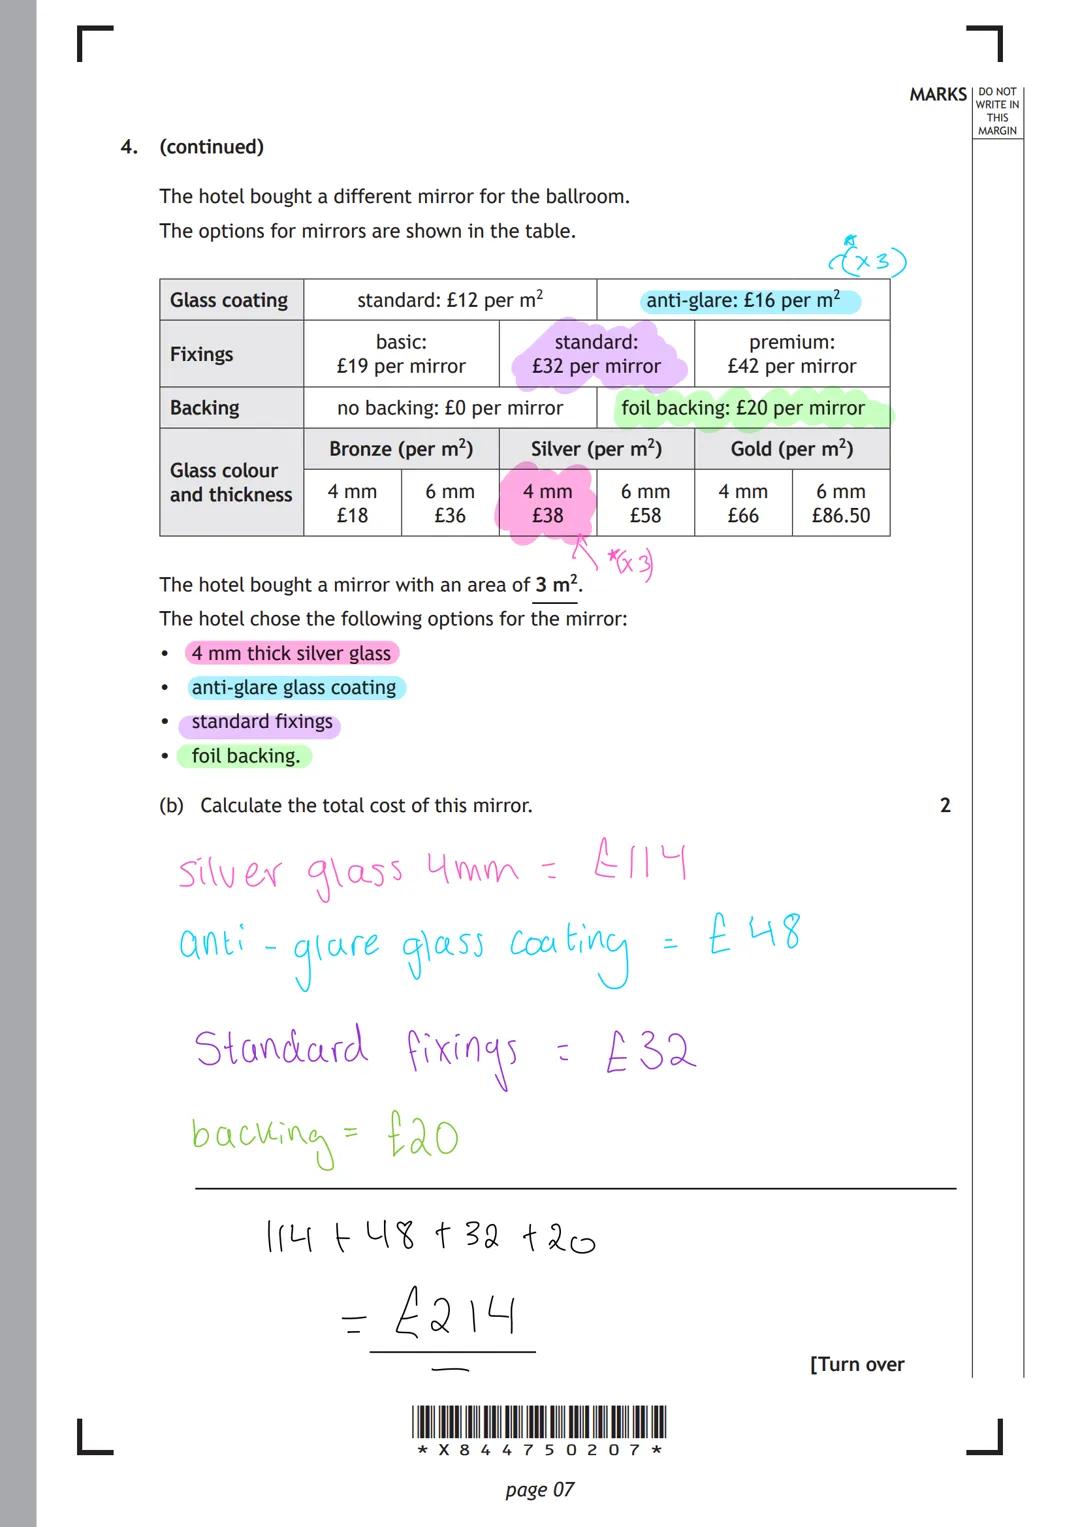 MARKS
DO NOT
WRITE IN
THIS
MARGIN
4. (continued)
The hotel bought a different mirror for the ballroom.
The options for mirrors are shown in the table.
*(x 3)
Glass coating standard: £12 per m² anti-glare: £16 per m²
Fixings basic: £19 per mirror standard: £32 per mirror premium: £42 per mirror
Backing no backing: £0 per mirror foil backing: £20 per mirror
Glass colour and thickness Bronze (per m²) Silver (per m²) Gold (per m²)
4 mm 6 mm 4 mm 6 mm 4 mm 6 mm
£18 £36 £38 £58 £66 £86.50
*(x 3)
The hotel bought a mirror with an area of 3 m².
The hotel chose the following options for the mirror:
• 4 mm thick silver glass
• anti-glare glass coating
• standard fixings
• foil backing.
(b) Calculate the total cost of this mirror. 2
silver glass 4mm = £114
anti-glare glass coating = £48
Standard fixings = £32
backing = £20
114 + 48 + 32 + 20
= £214
[Turn over
*X844750207*
page 07